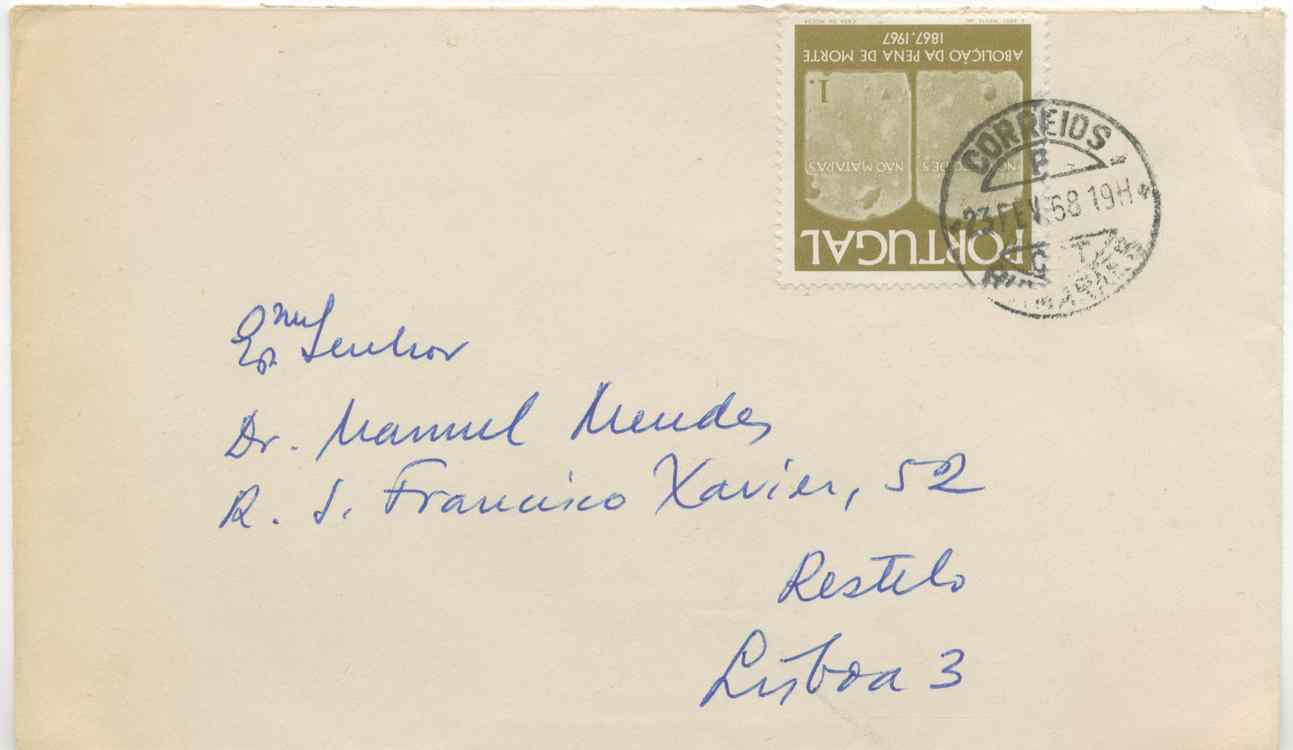 PORTUGAL
NÃO MATARÁS
1.
ABOLIÇÃO DA PENA DE MORTE
1867.1967
CORREIOS
23 FEV. 68 19H
Exmº Senhor
Dr. Manuel Mendes
R. S. Francisco Xavier, 52
Restelo
Lisboa 3